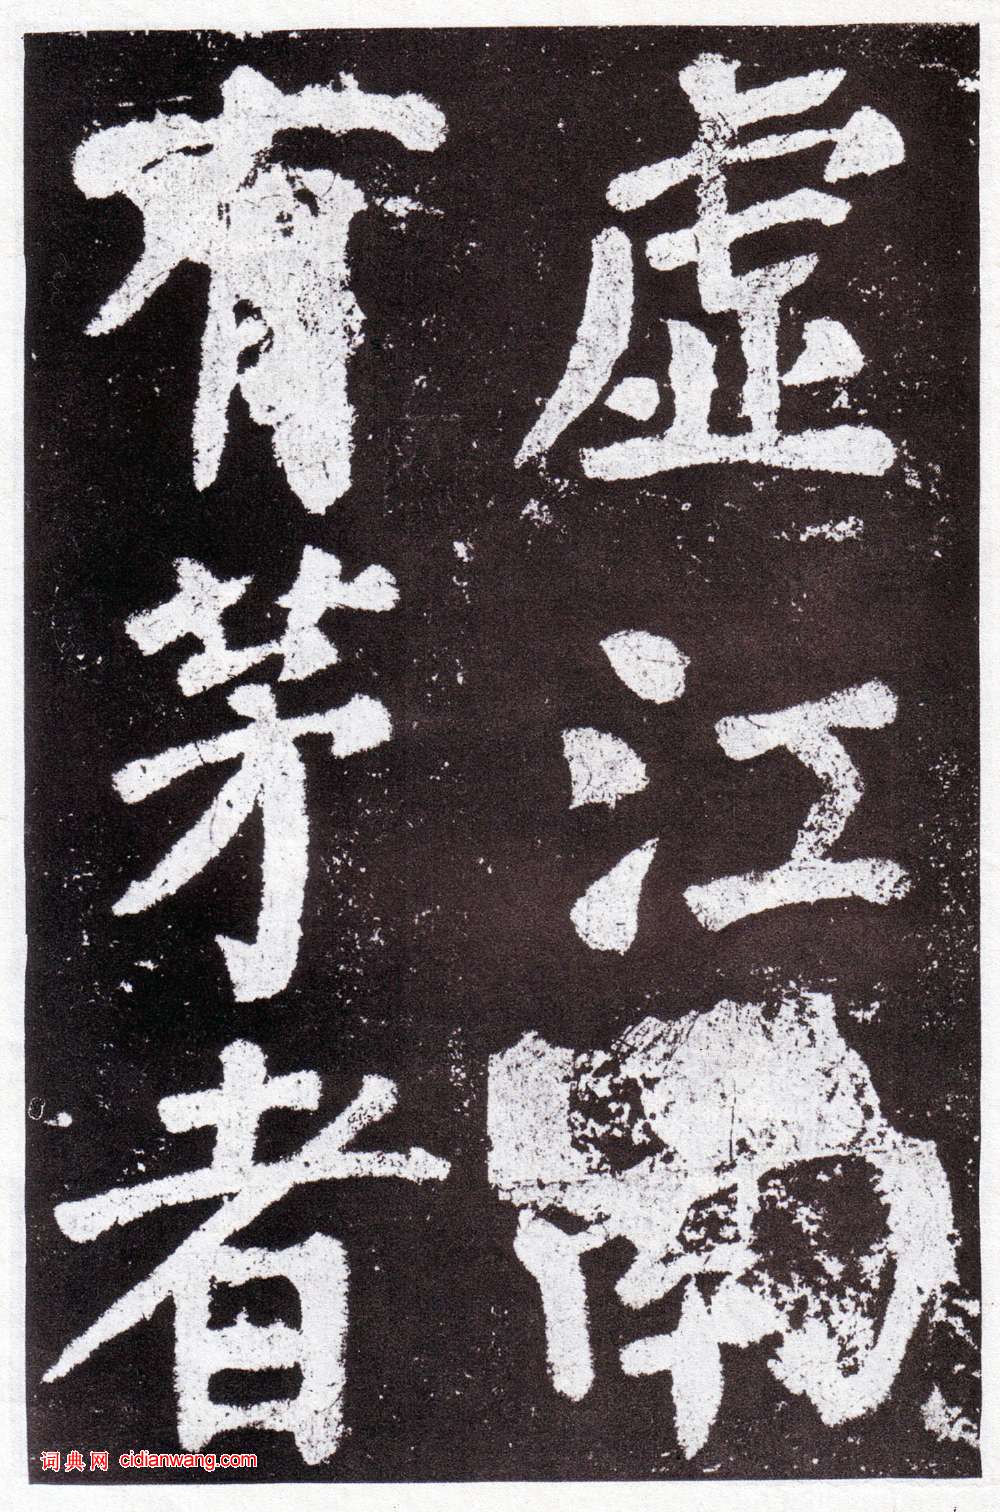 虚江南
有茅者
词典网 cidianwang.com